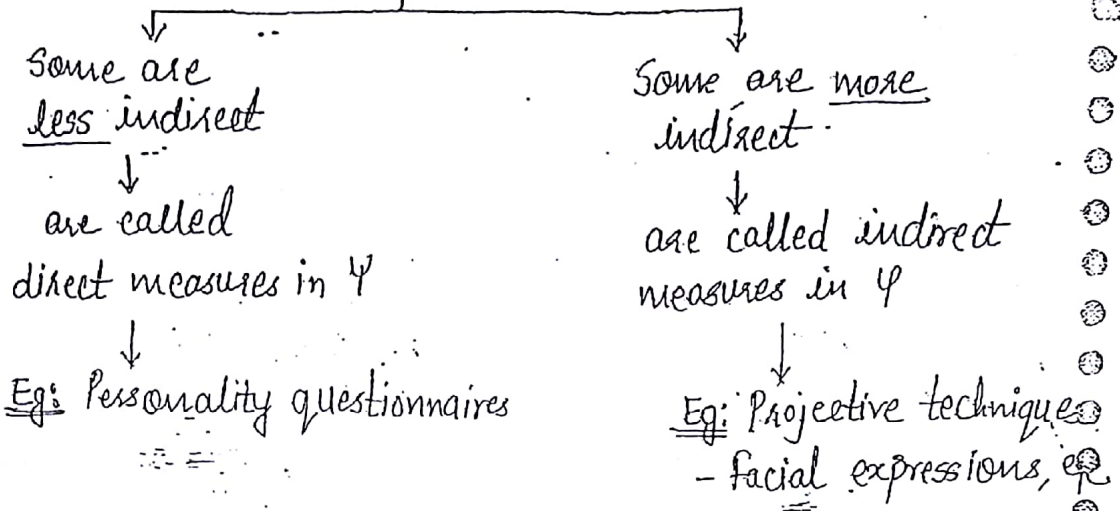 Some are
less indirect
are called
direct measures in Ψ
Eg: Personality questionnaires
Some are more
indirect
are called indirect
measures in Ψ
Eg: Projective techniques
- facial expressions,